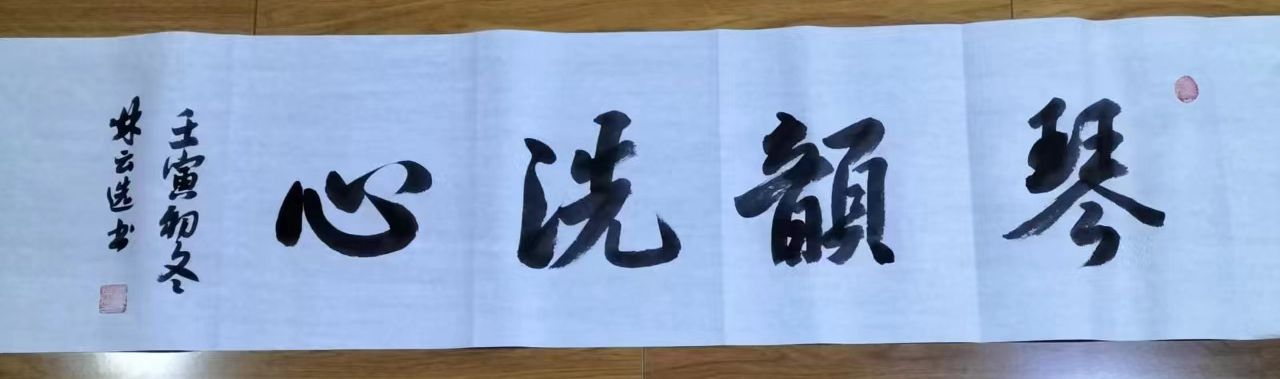 琴韻洗心
壬寅初冬
林云选书